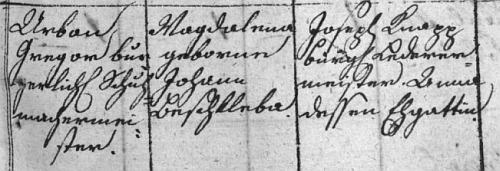 Urban
Gregor bur
gerlich Schuh
machermei
ster.
Magdalena
geborne
Johann
Joseph Knapp
burgl Lederer
meister. Anna
dessen Ehgattin